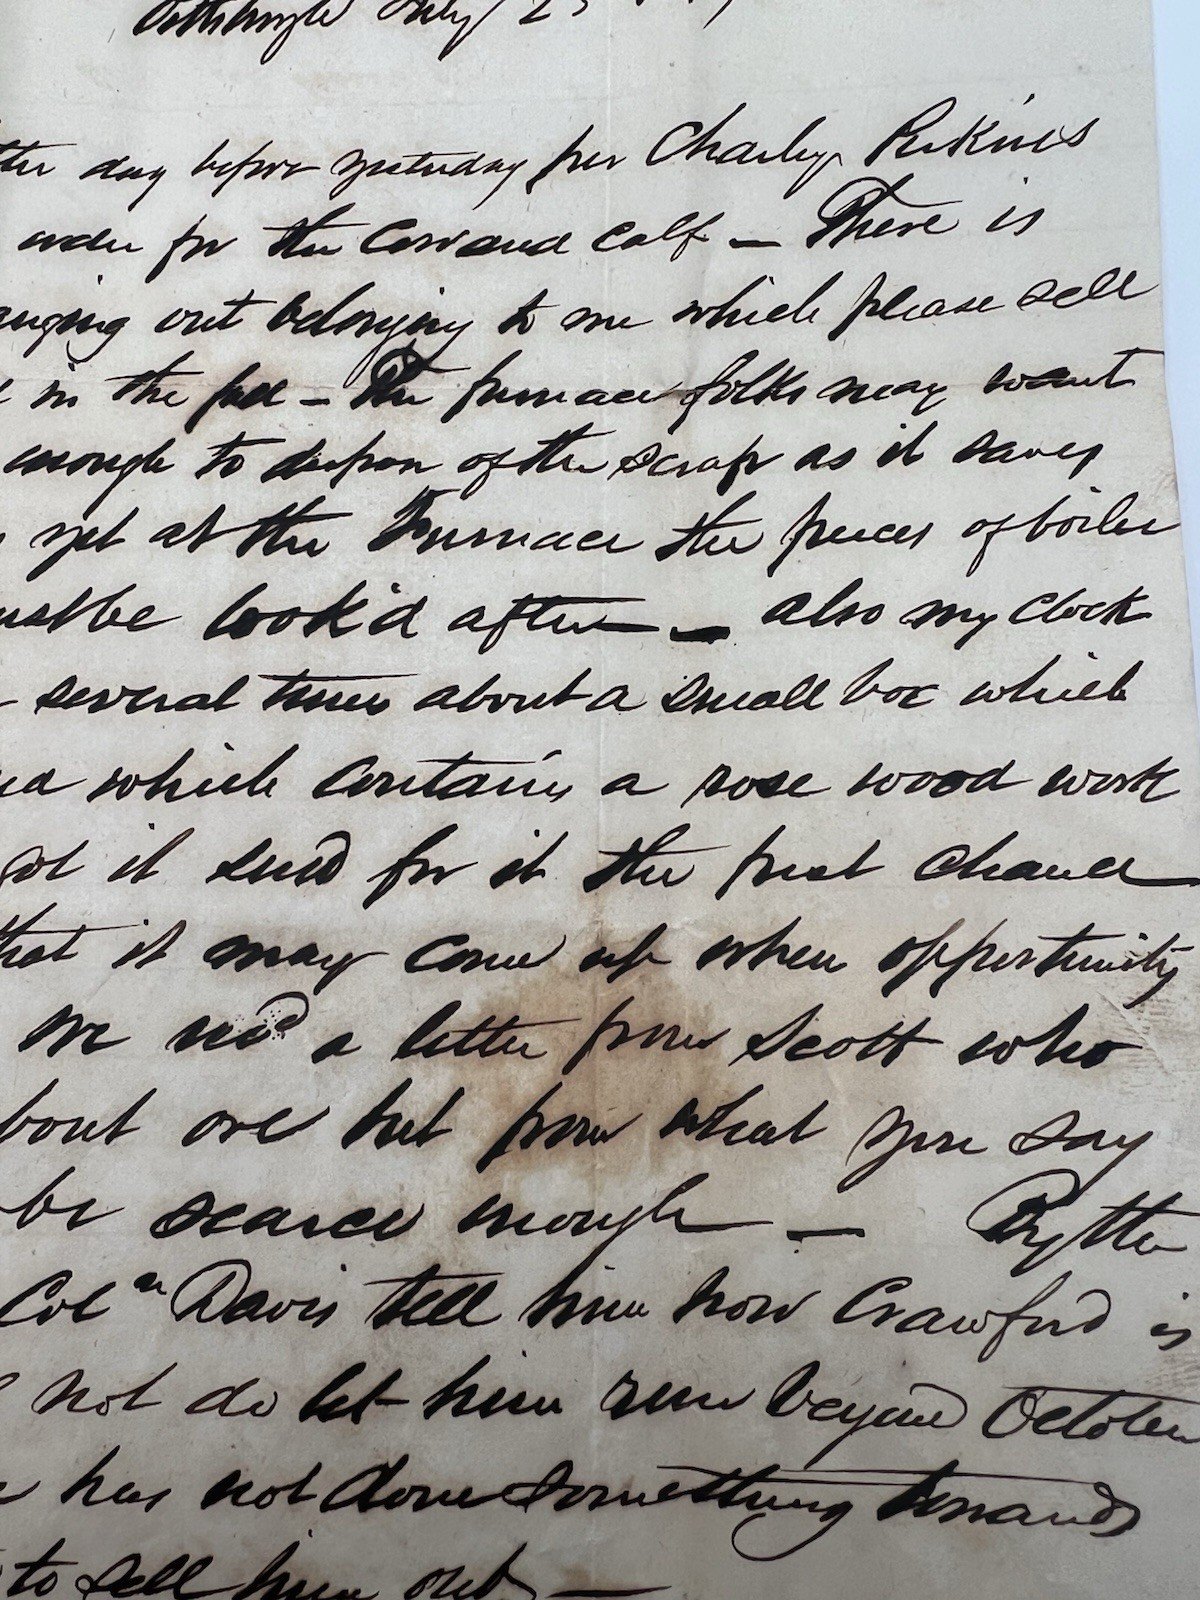 Pittsburgh July 23
day before yesterday per Charley Perkins
order for the Cow and calf — There is
out belonging to me which please sell
in the fall — The furnace folks may want
enough to dispose of the scrap as it saves
yet at the Furnace the peices of boiler
be look'd after — also my clock
several times about a small box which
which contains a rose wood work
got it send for it the first chance
that it may come up when opportunity
we rec'd a letter from Scott who
bout ore but from what you say
be scarce enough — By the
Col Davis tell him how Crawford is
not do let him run beyond October
has not done something towards
to sell him out —